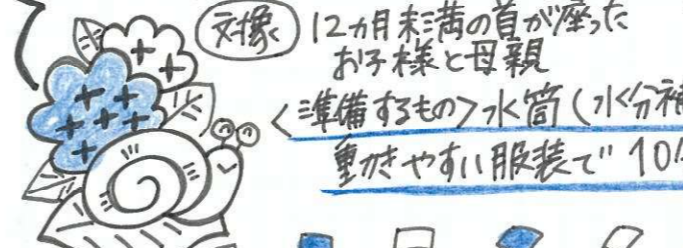 対象 12ヵ月未満の首が座った
お子様と母親
<準備するもの>水筒(水分補
動きやすい服装で 10